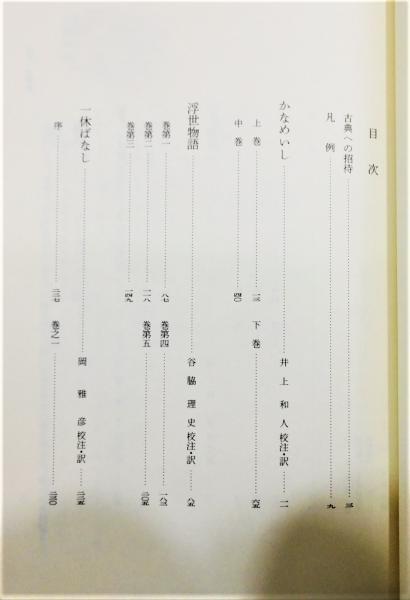 目次
古典への招待……三
凡例……九
かなめいし……井上和人校注・訳……一一
上巻……一三
下巻……六五
中巻……四〇
浮世物語……谷脇理史校注・訳……八五
巻第一……八七
巻第四……一八三
巻第二……一一八
巻第五……二〇五
巻第三……一四九
一休ばなし……岡雅彦校注・訳……二三五
序……二三七
巻之一……二三〇